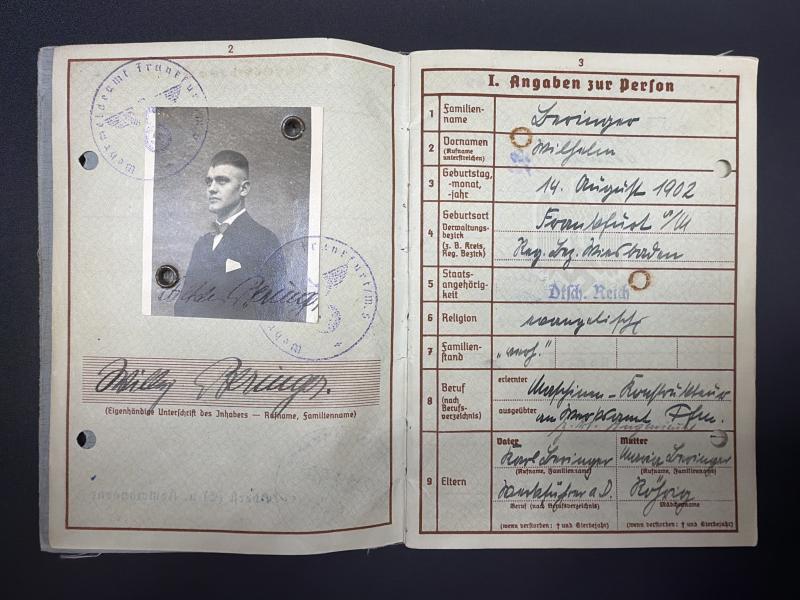 2
Wehrmeldeamt Frankfur
Frankfurt/M.5
Beringer
Willy Beringer.
(Eigenhändige Unterschrift des Inhabers — Rufname, Familienname)
3
I. Angaben zur Person
1 Familien-
name
Beringer
2 Vornamen
(Rufname
unterstreichen)
Wilhelm
3 Geburtstag,
-monat,
-jahr
14. August 1902
4 Geburtsort
Verwaltungs-
bezirk
(z. B. Kreis,
Reg. Bezirk)
Frankfurt a/M
Reg. Bez. Wiesbaden
5 Staats-
angehörig-
keit
Dtsch. Reich
6 Religion
evangelisch
7 Familien-
stand
„verh.“
8 Beruf
(nach
Berufs-
verzeichnis)
erlernter
Maschinen-Konstrukteur
ausgeübter
9 Eltern
Vater
Karl Beringer
(Rufname, Familienname)
Werkführer a.D.
Beruf (nach Berufsverzeichnis)
(wenn verstorben: † und Sterbejahr)
Mutter
Beringer
(Rufname, Familienname)
Röhrig
Mädchenname
(wenn verstorben: † und Sterbejahr)